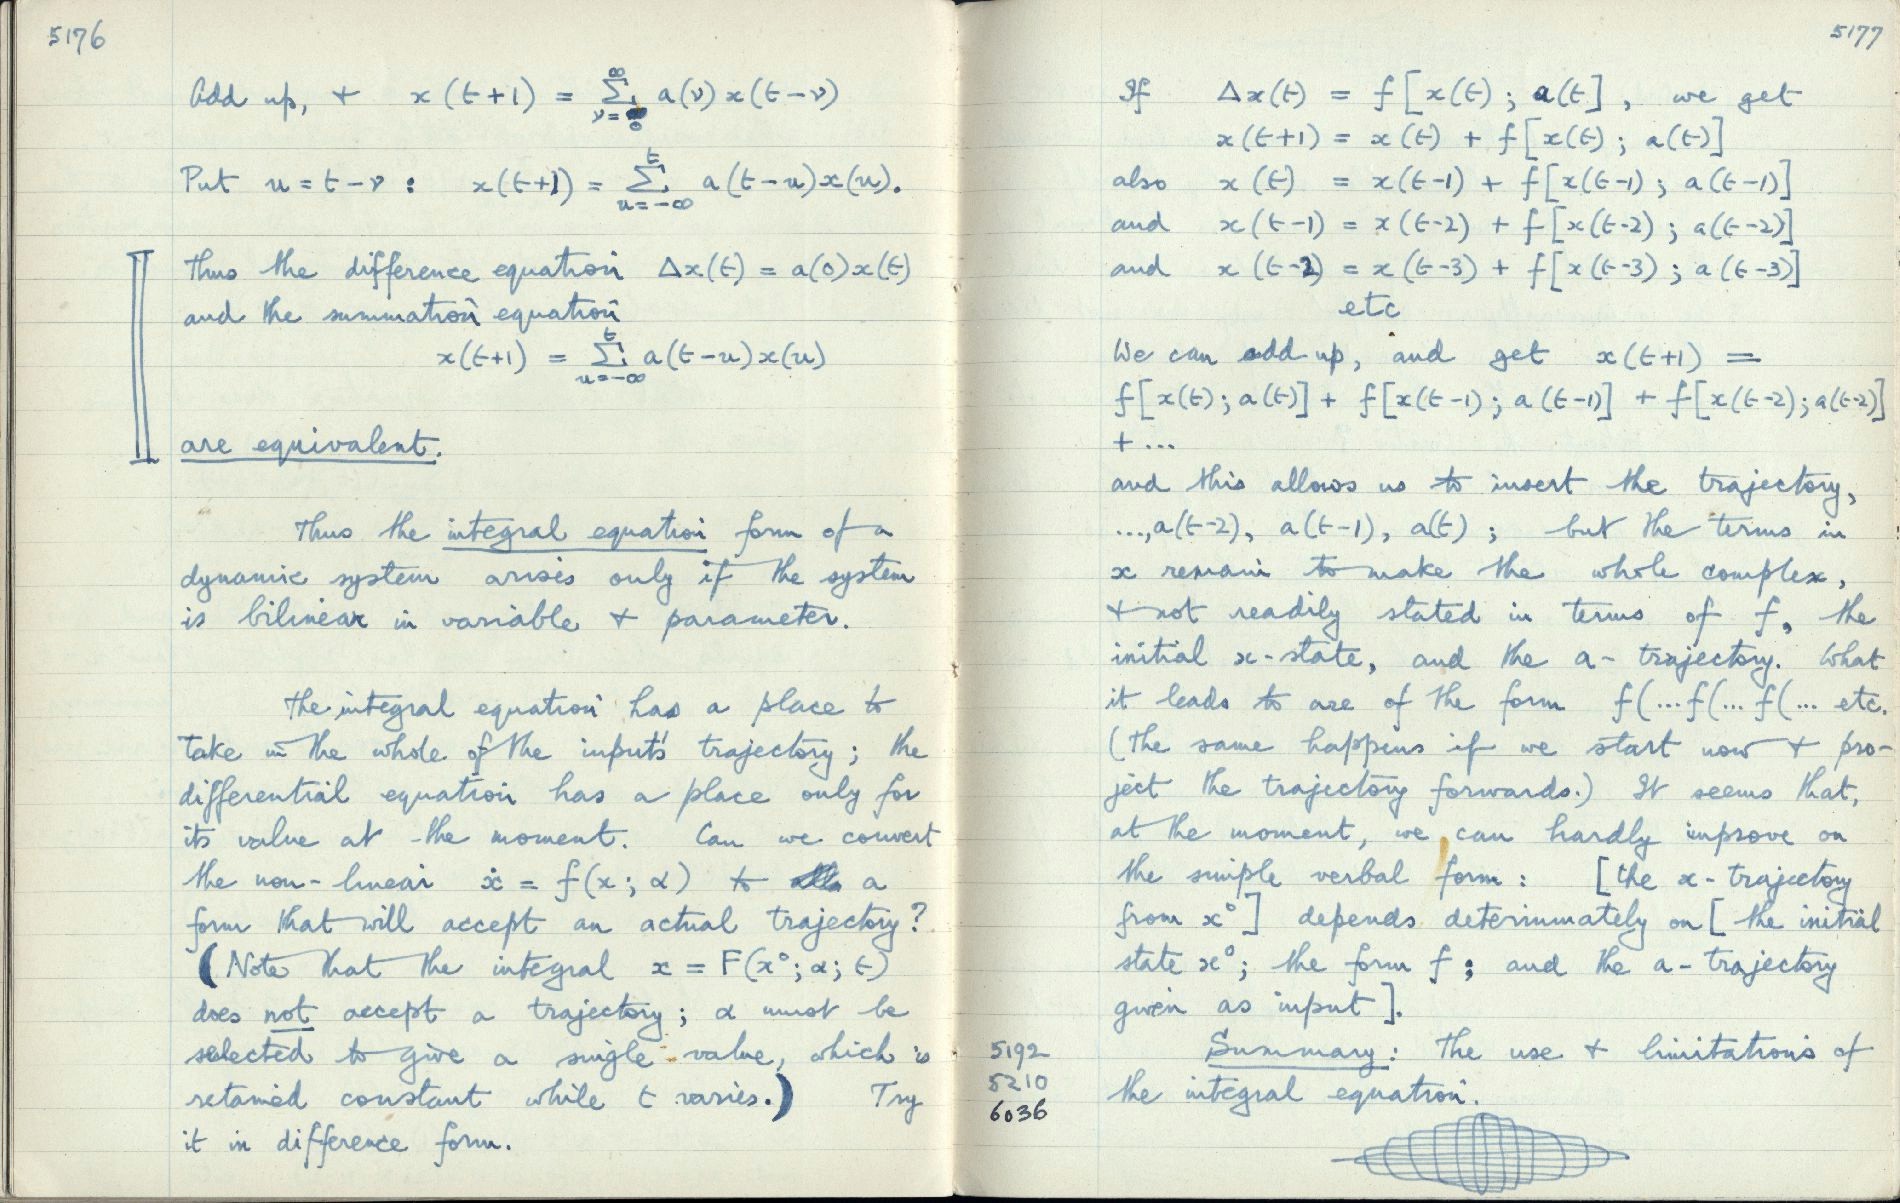 5176
Add up, + x(t+1) = ∞ Σ ν=0 a(ν)x(t-ν)
Put u = t-ν : x(t+1) = t Σ u=-∞ a(t-u)x(u).
Thus the difference equation Δx(t) = a(0)x(t)
and the summation equation
x(t+1) = t Σ u=-∞ a(t-u)x(u)
are equivalent.
Thus the integral equation form of a
dynamic system arises only if the system
is bilinear in variable + parameter.
The integral equation has a place to
take in the whole of the input's trajectory; the
differential equation has a place only for
its value at the moment. Can we convert
the non-linear ẋ = f(x; α) to a
form that will accept an actual trajectory?
(Note that the integral x = F(x°; α; t)
does not accept a trajectory; α must be
selected to give a single value, which is
retained constant while t varies.) Try
it in difference form.
5177
If Δx(t) = f[x(t); a(t], we get
x(t+1) = x(t) + f[x(t); a(t)]
also x(t) = x(t-1) + f[x(t-1); a(t-1)]
and x(t-1) = x(t-2) + f[x(t-2); a(t-2)]
and x(t-2) = x(t-3) + f[x(t-3); a(t-3)]
etc
We can add up, and get x(t+1) =
f[x(t); a(t)] + f[x(t-1); a(t-1)] + f[x(t-2); a(t-2)]
+ ...
and this allows us to insert the trajectory,
..., a(t-2), a(t-1), a(t); but the terms in
x remain to make the whole complex,
+ not readily stated in terms of f, the
initial x-state, and the a-trajectory. What
it leads to are of the form f(...f(...f(... etc.
(The same happens if we start now + pro-
ject the trajectory forwards.) It seems that,
at the moment, we can hardly improve on
the simple verbal form: [the x-trajectory
from x°] depends determinately on [the initial
state x°; the form f; and the a-trajectory
given as input].
Summary: The use + limitations of
the integral equation.
5192
5210
6036